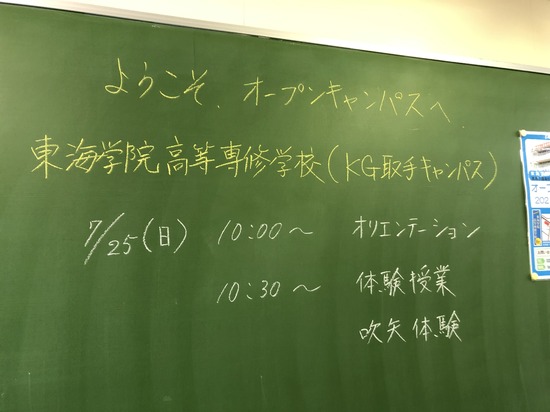 ようこそ、オープンキャンパスへ
東海学院高等専修学校(KG取手キャンパス)
7/25(日) 10:00～ オリエンテーション
10:30～ 体験授業
吹矢体験